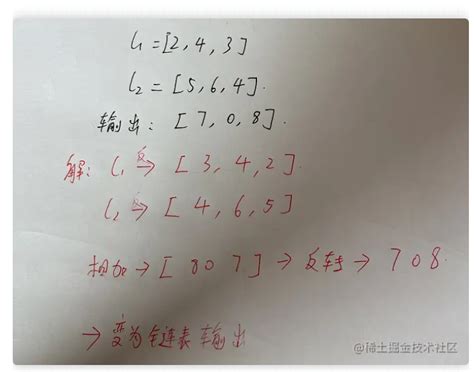 l1 = [2, 4, 3]
l2 = [5, 6, 4].
输出: [7, 0, 8].
解: l1 反→ [3, 4, 2].
l2 反→ [4, 6, 5]
相加 → [8 0 7] → 反转 → 7 0 8.
→ 变为 链表 输出
@稀土掘金技术社区